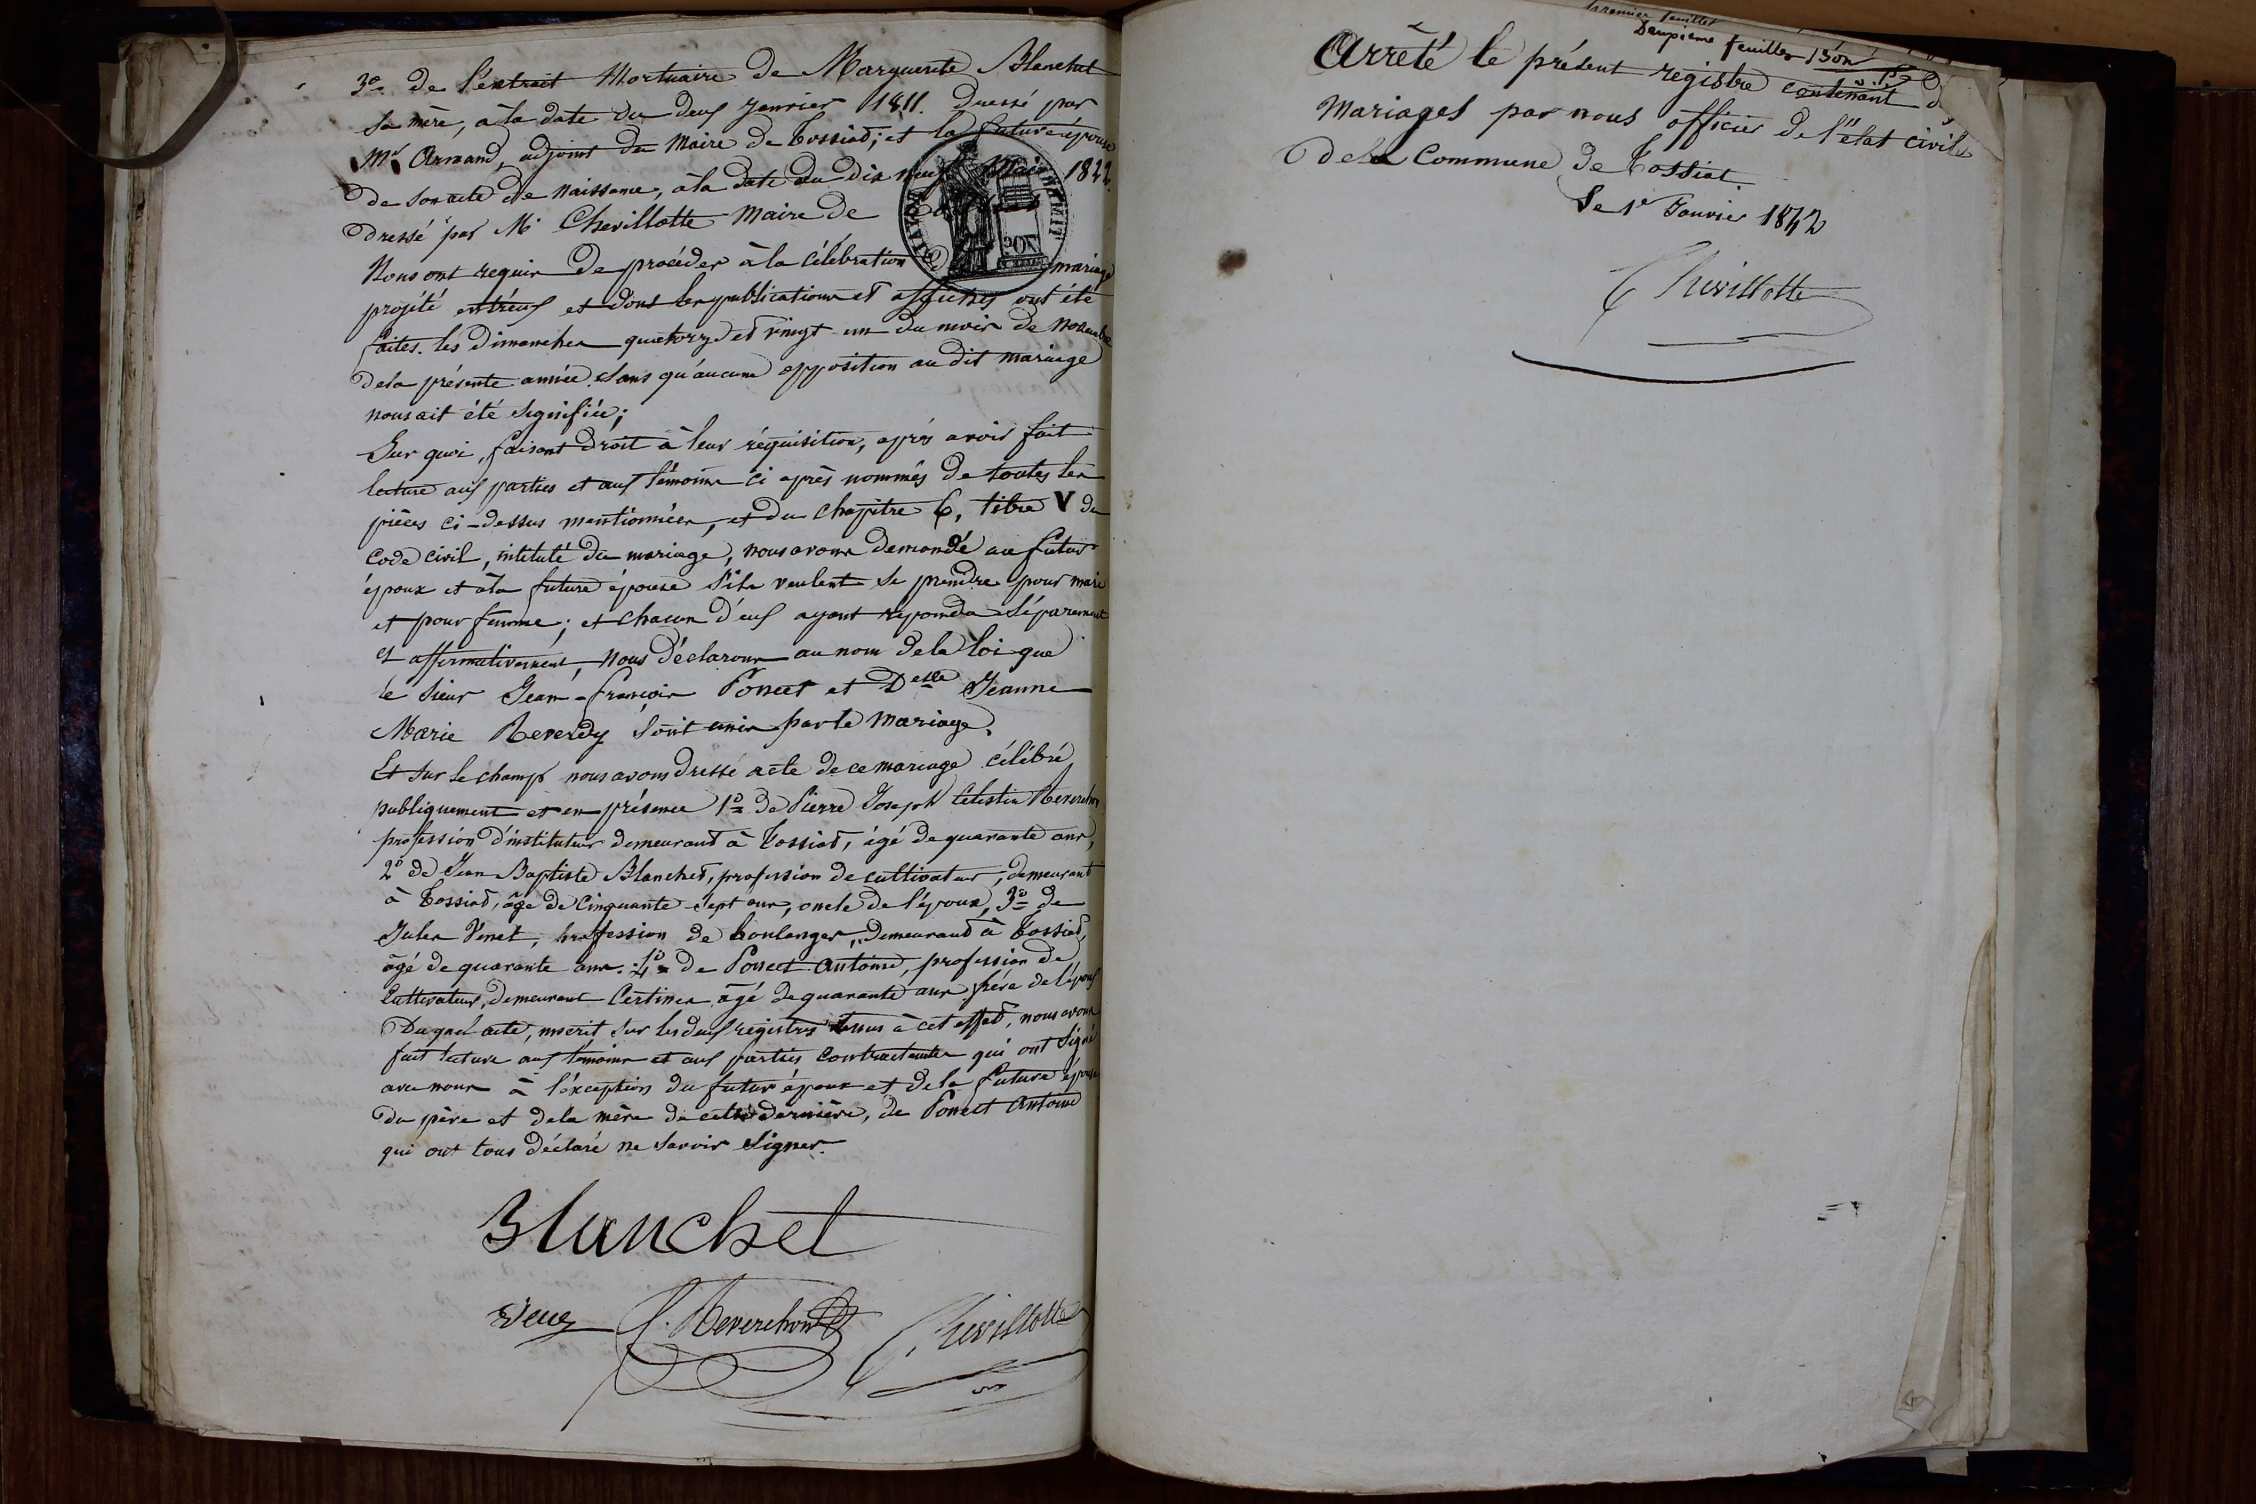 3º de l'extrait Mortuaire de Marguerite Blanchet
sa mère, à la date du deux Janvier 1811. dressé par
Mr Armand, adjoint du Maire de Tossiat; et la future épouse
de son acte de naissance, à la date du dix neuf Mai 1822.
dressé par Mr Chevillotte Maire de
Nous ont requis de procéder à la célébration mariage
projeté entr'eux et dont les publications et affiches ont été
faites les Dimanches quatorze et vingt un du mois de Novembre
de la présente année. Sans qu'aucune opposition au dit mariage
nous ait été signifiée;
Sur quoi, faisant droit à leur réquisition, après avoir fait
lecture aux parties et aux témoins ci après nommés de toutes les
pièces ci-dessus mentionnées, et du chapitre 6, titre V du
Code civil, intitulé du mariage, nous avons demandé au futur
époux et à la future épouse s'ils veulent se prendre pour mari
et pour femme; et chacun d'eux ayant repondu séparement
et affirmativement, Nous déclarons au nom de la loi que
le Sieur Jean-françois Poncet et Delle Jeanne
Marie Reverdy sont unis par le mariage.
Et sur le champ nous avons dressé acte de ce mariage célébré
publiquement et en présence 1º de Pierre Joseph Célestin Reverchon
profession d'instituteur demeurant à Tossiat, âgé de quarante ans,
2º de Jean Baptiste Blanchet, profession de cultivateur, demeurant
à Tossiat, âgé de Cinquante-sept ans, oncle de l'époux, 3º de
Jules Venet, profession de boulanger, demeurant à Tossiat,
âgé de quarante ans. 4º de Poncet Antoine, profession de
Cultivateur, demeurant Certines âgé de quarante ans frère de l'époux
Du quel acte, inscrit sur les deux registres tenus à cet effet, nous avons
fait lecture aux témoins et aux parties contractantes qui ont signé
avec nous à l'exception du futur époux et de la future épouse
du père et de la mère de cette dernière, de Poncet Antoine
qui ont tous déclaré ne savoir signer.
Blanchet
Reverchon
Chevillotte
premier feuillet
Deuxieme feuillet
Arrêté le présent registre contenant
Mariages par nous officier de l'état civil
de la Commune de Tossiat.
Le 1er Janvier 1842
Chevillotte